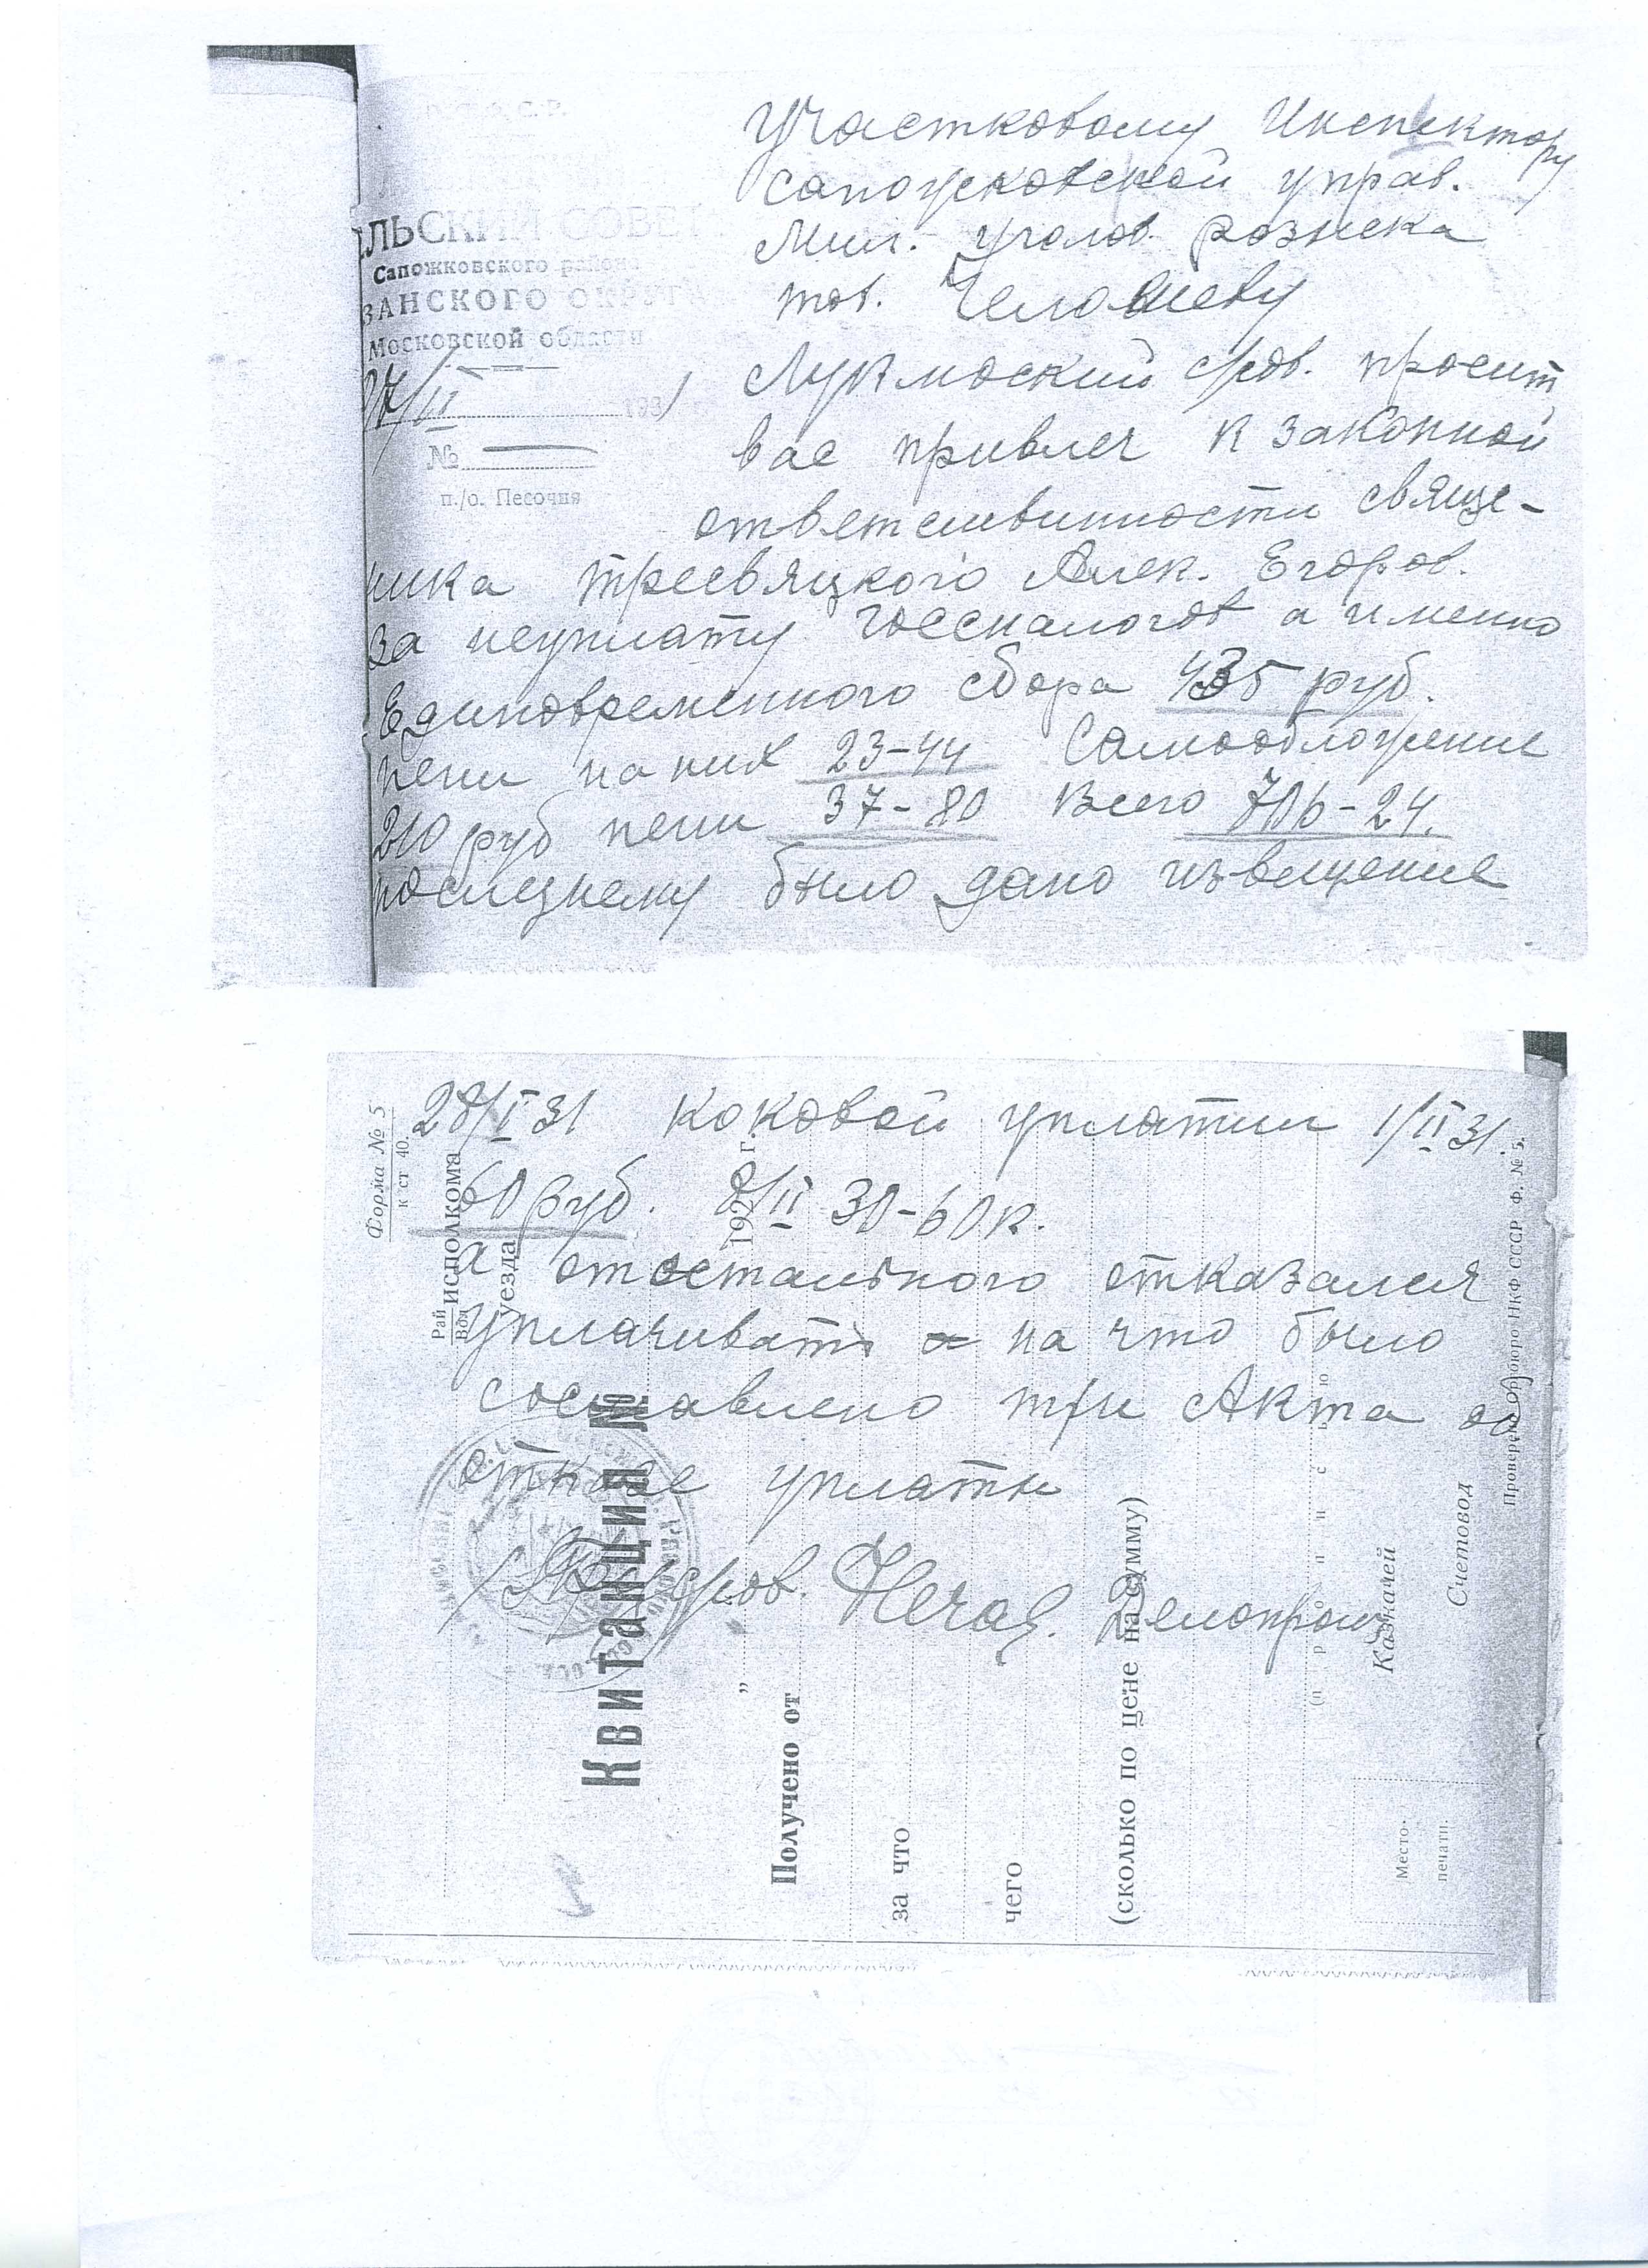 Р.С.Ф.С.Р.
ЛЬСКИЙ СОВЕТ
Сапожковского района
ЗАНСКОГО ОКРУГА
Московской области
27/II 1931
№
п./о. Песочня
Участковому Инспектору
Сапожковской управ.
Мил. уголов. розиска
тов.
Лукмоский с/сов. просит
вас привлеч к законной
ответсивинности свяще-
ника Тресвяцкого Алек. Егоров.
за неуплату Госсналогов а именно
Единовременного сбора 435 руб.
пени на них 23-44 Самообложение
210 руб пени 37-80 Всего 706-24.
последнему было дано извещение
28/I 31 коковой уплатил 1/II 31.
60 руб. 8/II 30-60 к.
а отостального отказался
уплачивать на что было
составлено три Акта об
отказе уплаты
с/сов. Нечаев. Делопроиз
Форма № 5
к ст 40.
Рай
Вол
исполкома
уезда
Квитанция №
" 192 г.
Получено от
за что
чего
(сколько по цене на сумму)
(п р о п и с ь ю
Казначей
Счетовод
Место.
печати.
Проверено Оргбюро НКФ СССР Ф. № 5.